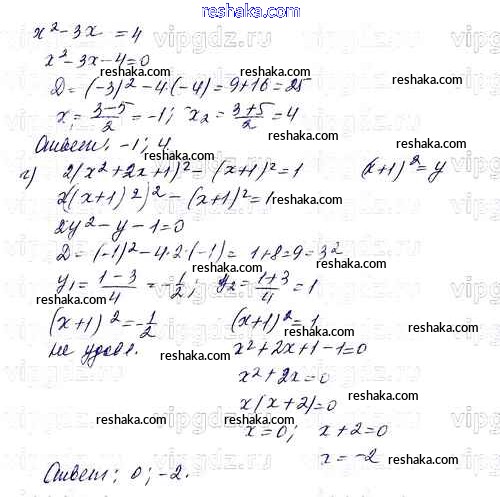 reshaka.ru
x² - 3x = 4
x² - 3x - 4 = 0
D = (-3)² - 4·(-4) = 9 + 16 = 25
x₁ = (3-5)/2 = -1; x₂ = (3+5)/2 = 4
Ответ: -1; 4.
г) 2(x² + 2x + 1)² - (x+1)² = 1 (x+1)² = y
2((x+1)²)² - (x+1)² = 1
2y² - y - 1 = 0
D = (-1)² - 4·2·(-1) = 1 + 8 = 9 = 3²
y₁ = (1-3)/4 = -1/2, y₂ = (1+3)/4 = 1
(x+1)² = -1/2 (x+1)² = 1
не удовл. x² + 2x + 1 - 1 = 0
x² + 2x = 0
x(x+2) = 0
x = 0; x + 2 = 0
x = -2
Ответ: 0; -2.